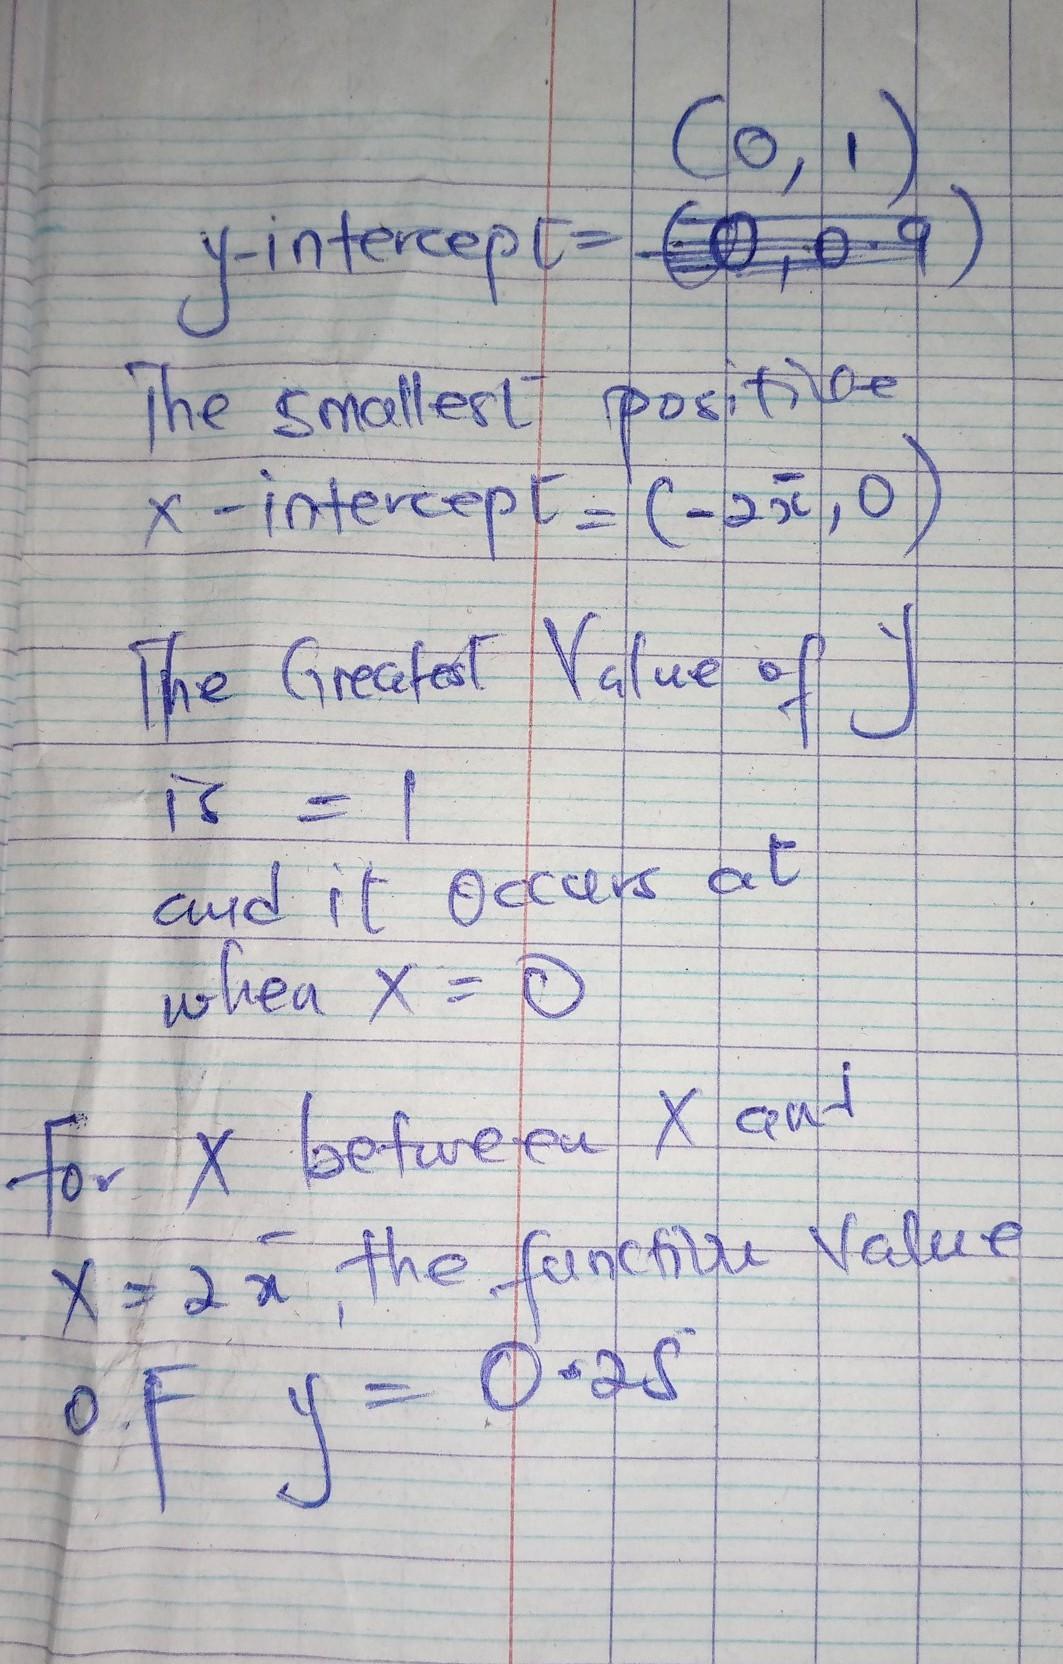 (0, 1)
y-intercept =
The smallest positive
x-intercept = (-2π, 0)
The Greatest Value of y
is = 1
and it occurs at
when x = 0
for x between x and
x = 2π, the function value
of y = 0.25